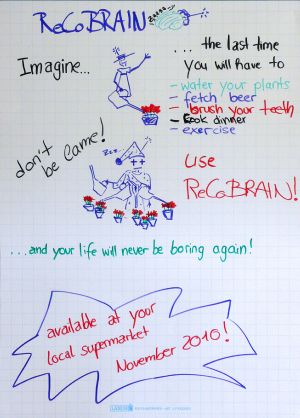 ReCoBRAIN
Imagine...
... the last time
you will have to
- water your plants
- fetch beer
- brush your teeth
- cook dinner
- exercise
don't be lame!
Zzz...
USE
ReCoBRAIN!
...and your life will never be boring again!
available at your
local supermarket
November 2010!